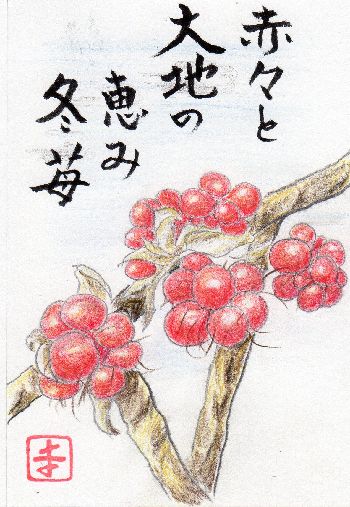 赤々と
大地の
恵み
冬苺